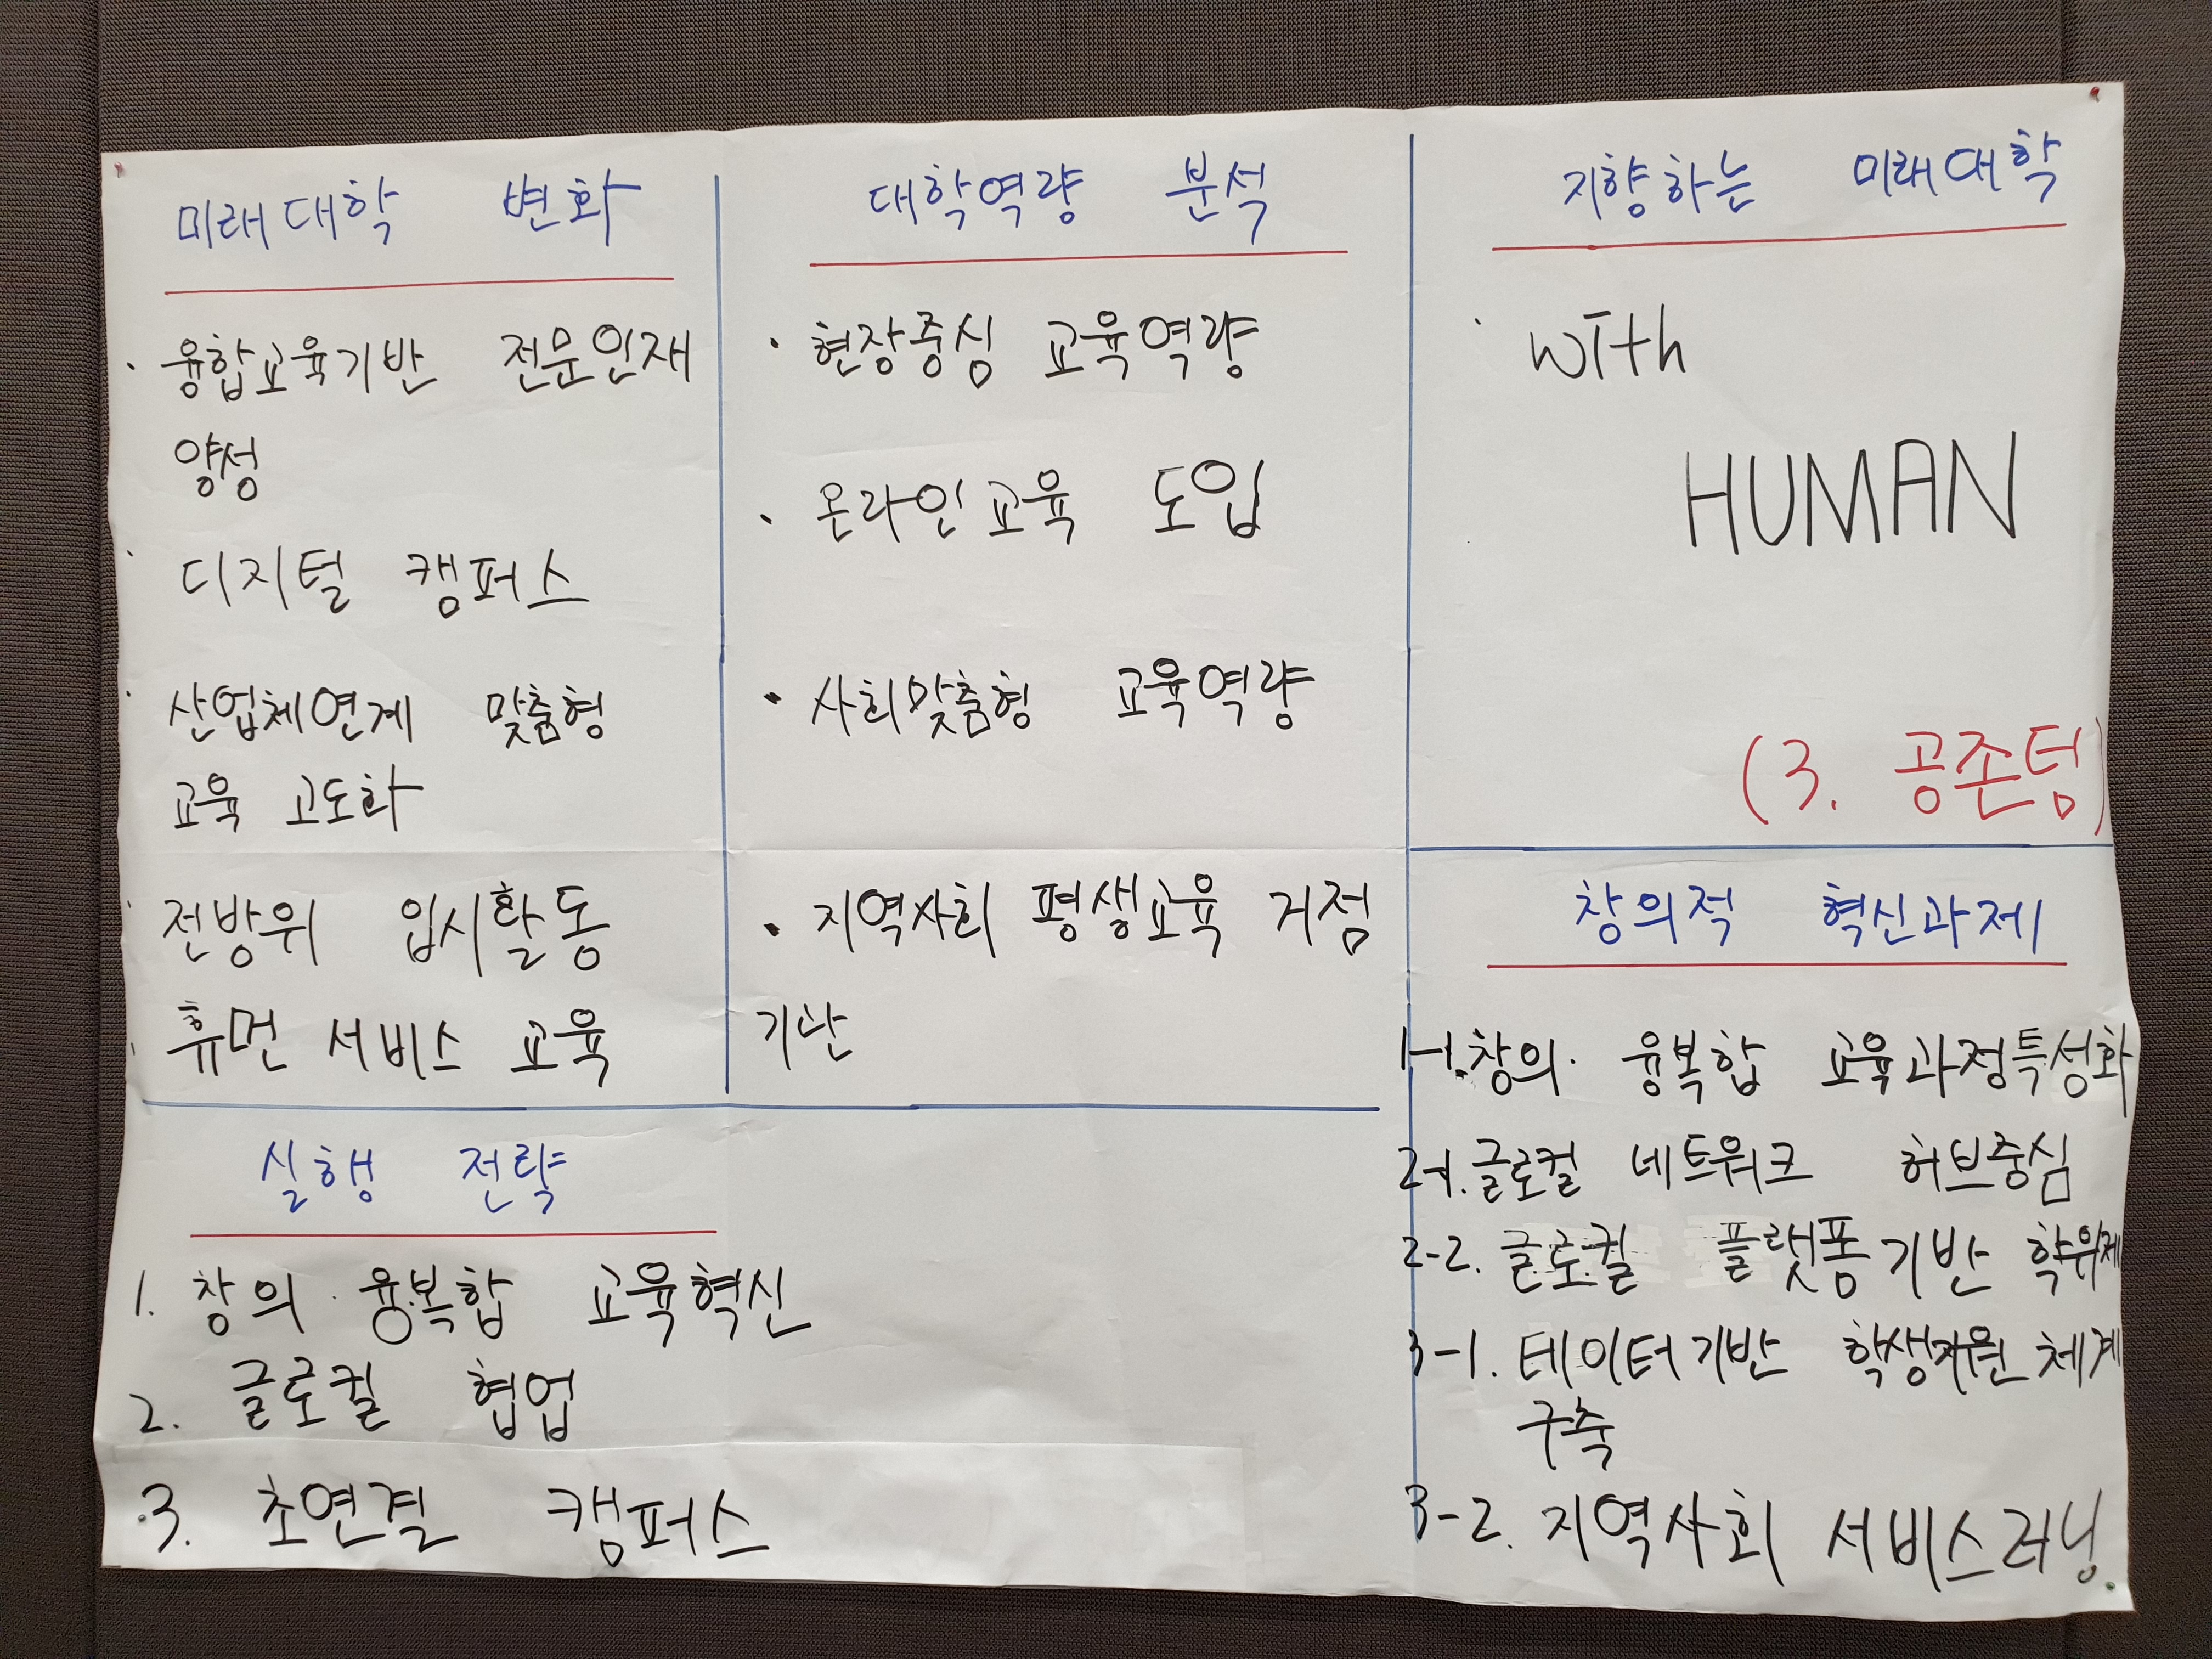 미래대학 변화
· 융합교육기반 전문인재
양성
· 디지털 캠퍼스
· 산업체연계 맞춤형
교육 고도화
· 전방위 입시활동
· 휴먼 서비스 교육
대학역량 분석
· 현장중심 교육역량
· 온라인교육 도입
· 사회맞춤형 교육역량
· 지역사회 평생교육 거점
기난
지향하는 미래대학
· with
HUMAN
(3. 공존텀)
창의적 혁신과제
1-1. 창의· 융복합 교육과정특성화
2-1. 글로컬 네트워크 허브중심
2-2. 글로컬 플랫폼기반 학위제
3-1. 테이터기반 학생지원체계
구축
3-2. 지역사회 서비스러닝.
실행 전략
1. 창의·융복합 교육혁신
2. 글로컬 협업
3. 초연결 캠퍼스